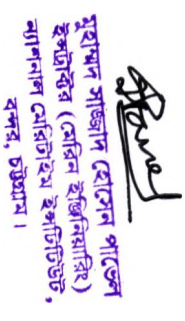 মুহাম্মদ সাদ্দাম হোসেন পাভেল
ইন্সট্রাক্টর (মেরিন ইঞ্জিনিয়ারিং)
ন্যাশনাল মেরিটাইম ইনস্টিটিউট,
বন্দর, চট্টগ্রাম।